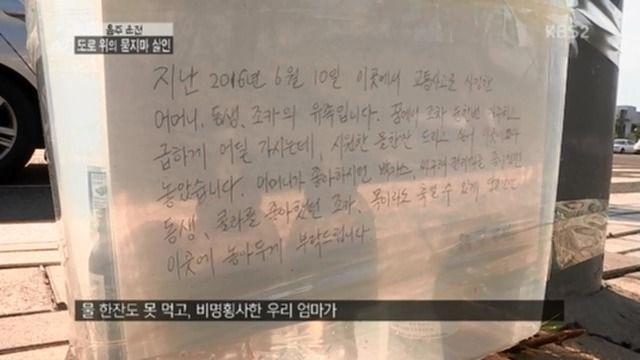 음주 운전
도로 위의 묻지마 살인
KBS2
지난 2016년 6월 10일 이곳에서 교통사고로 사망한
어머니, 동생, 조카의 유족입니다. 꿈에서 조차
급하게 어딜 가시는데, 시원한 물한잔 드리고 싶어 이곳에
놓았습니다. 어머니가 좋아하시던 박카스,
동생, 콜라를 좋아했던 조카, 목이라도 축일 수 있게
이곳에 놓아두게 부탁드립니다.
물 한잔도 못 먹고, 비명횡사한 우리 엄마가